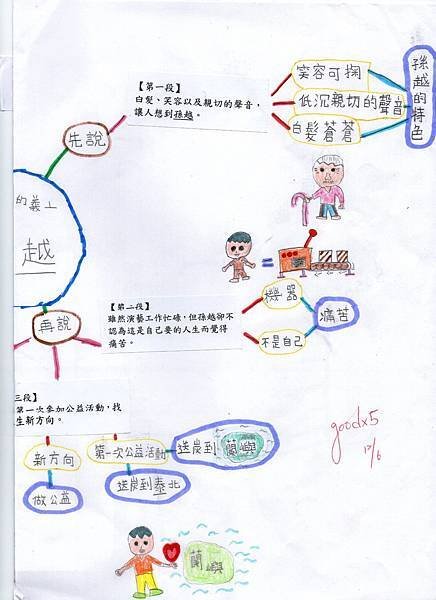 【第一段】
白髮、笑容以及親切的聲音，
讓人想到孫越。
笑容可掬
低沉親切的聲音
白髮蒼蒼
孫越的特色
先說
的義工
越
再說
【第二段】
雖然演藝工作忙碌，但孫越卻不
認為這是自己要的人生而覺得
痛苦。
機器
不是自己
痛苦
三段】
第一次參加公益活動，找
生新方向。
新方向
做公益
第一次公益活動
送炭到蘭嶼
送炭到泰北
goodx5
12/6
蘭嶼